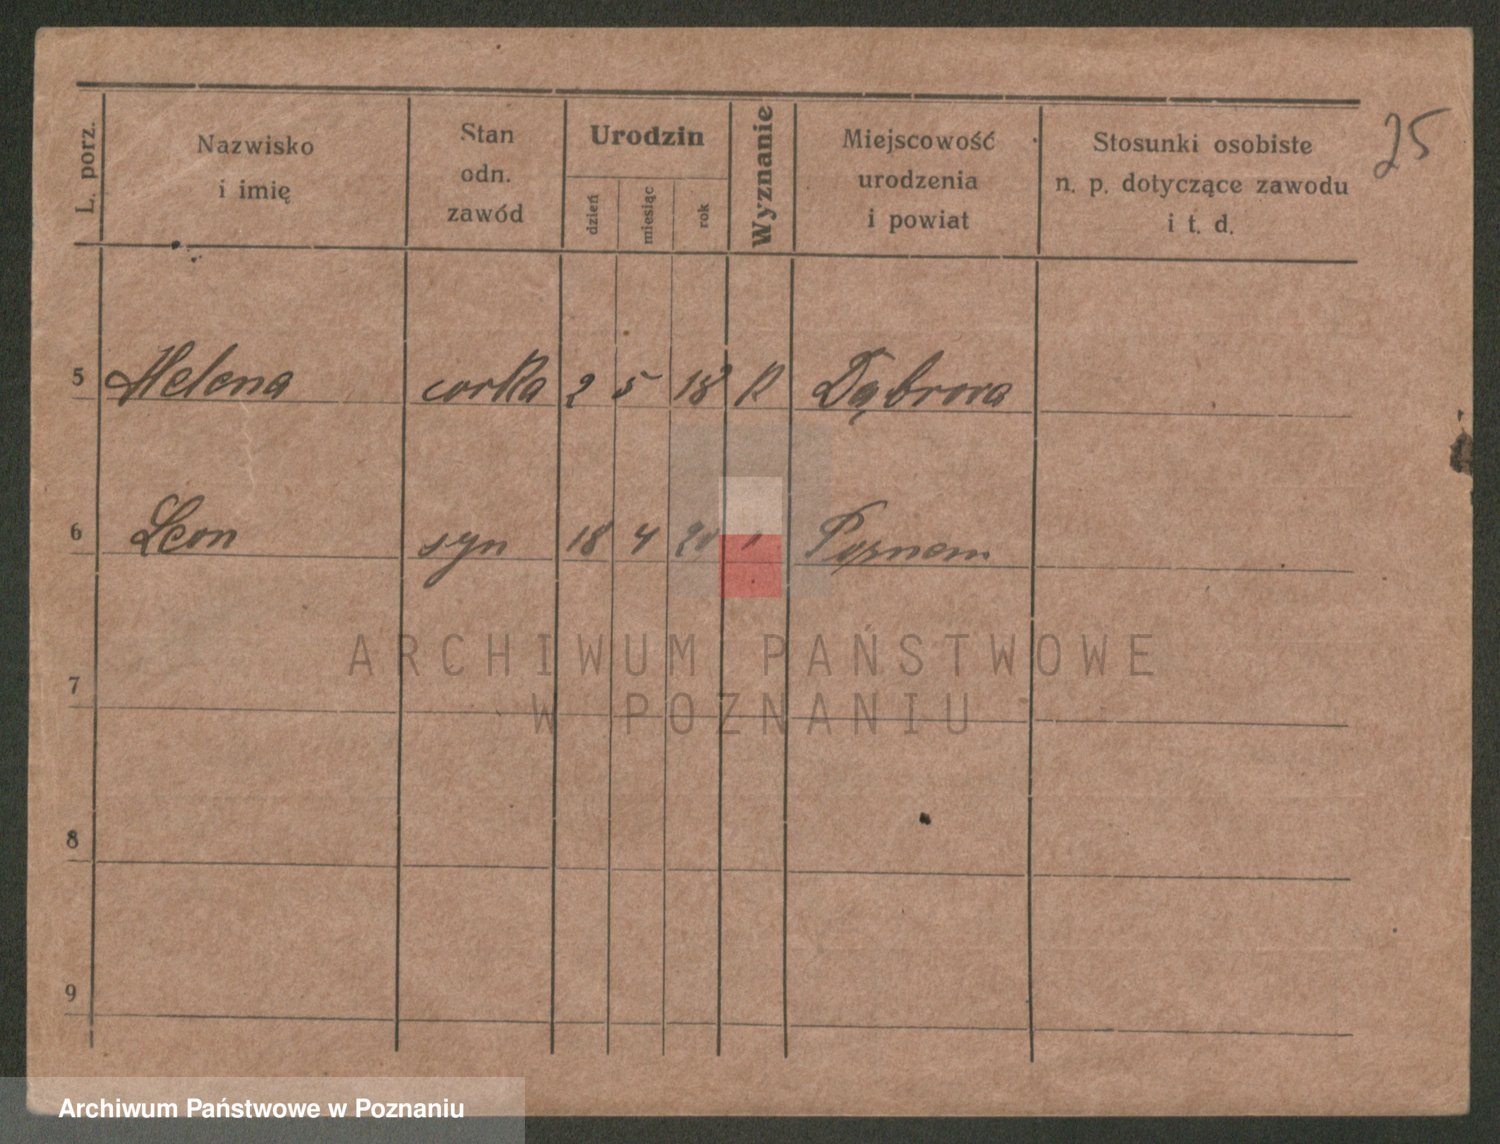 25
L. porz.
Nazwisko
i imię
Stan
odn.
zawód
Urodzin
dzień
miesiąc
rok
Wyznanie
Miejscowość
urodzenia
i powiat
Stosunki osobiste
n. p. dotyczące zawodu
i t. d.
5 Helena corka 2 5 18 R Dąbrowa
6 Leon syn 18 4 20 " Poznań
ARCHIWUM PAŃSTWOWE
W POZNANIU
7
8
9
Archiwum Państwowe w Poznaniu